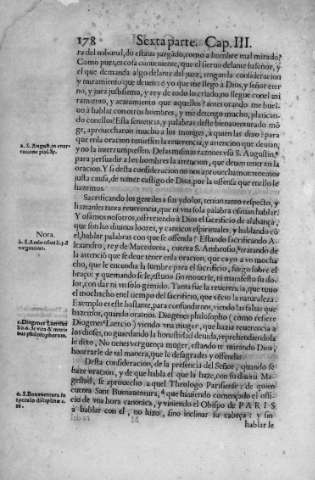 178 Sexta parte. Cap. III.
ra del tribunal, do estaua juzgado, como a hombre mal mirado?
Como pues, en cosa conueniente, que el sieruo delante su señor, y
el que demanda algo delante del juez, tenga la consideracion
y miramiento que deue: e yo que me llego a Dios, y señor eter
no, y juez justissimo, y rey de todo lo criado, no llegue con el mi
ramiento, y acatamiento que aquellos? antes orando me buel-
uo a hablar con otros hombres, y me detengo mucho,
Esta sentencia, y palabras deste bienauenturado mõ
ge, aprouecharon mucho a los monges, a quien las dixo: para
que en la oracion tuuiessen la reuerencia, y atencion que deuian,
y no la interrumpiessen. Delas mismas razones vsa S. Augustin,
para persuadir a los hombres la atencion, que deuen tener en la
oracion. Y si desta consideracion no nos aprouecharemos
justa causa, de temer castigo de Dios, por la offensa que en ello le
haremos.
Sacrificando los gentiles a sus ydolos, tenian tanto respeto, y
reuerencia, que ni vna sola palabra osauan hablar?
Y osamos nosotros, offreciendo a Dios el sacrificio de alabança,
que son los diuinos loores, y canticos espirituales, y hablando cõ
el, hablar palabras con que se offenda? Estando sacrificando A-
lexandro, rey de Macedonia, cuenta S. Ambrosio,
la atenciõ que se deue tener en la oracion, que cayo a vn mocha
cho, que le encendia la lumbre para el sacrificio, fuego sobre el
braço: y quemandosele, estuuo sin mouerse, ni manifesto su do-
lor, con dar ni vn solo gemido. Tanta fue la reuerencia, que tuuo
el mochacho en el tiempo del sacrificio, que vécio la naturaleza.
Exemplo es este bastante, para confundirnos, viendo las faltas que
hazemos, quando oramos. Diogenes philosopho (como refiere
Diogenes Laercio) viendo vna muger, que hazia reuerencia a
los dioses, no guardando la honestidad deuida, reprehendiendola
le dixo, No tienes verguença muger, estando te mirando Dios,
honrarle de tal manera, que le desagrades y offendas.
Desta consideracion, de la presencia del Señor, quando se
haze oracion, y de que habla el que la haze, con su diuina Ma-
gestad, se aprouecho aquel Theologo Parisiense: de quien
cuenta Sant Buenauentura, que hauiendo començado el offi-
cio de vna hora canonica, y viniendo el Obispo de PARIS
a hablar con el, no hizo, sino inclinar su cabeça: y sin
hablar le
a. S. August. in
Nora.
b. S. Ambrosius
c. Diogenes Laertius
libro 6. de vita & mori-
bus philosophorum.
d. S. Bonauentura. in
speculo disciplinæ